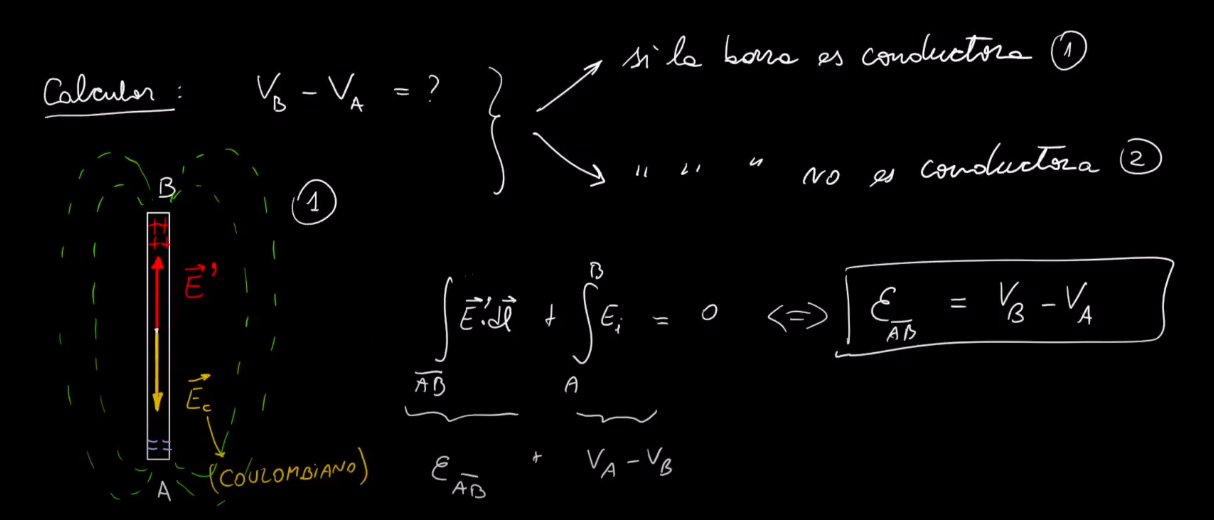 Calcular: V_B - V_A = ?
si la barra es conductora ①
" " " no es conductora ②
①
B
E⃗'
E⃗_c
(COULOMBIANO)
A
∫_{\overline{AB}} E⃗'·dl⃗ + ∫_A^B E_i = 0 <=> ℰ_{\overline{AB}} = V_B - V_A
ℰ_{\overline{AB}} + V_A - V_B